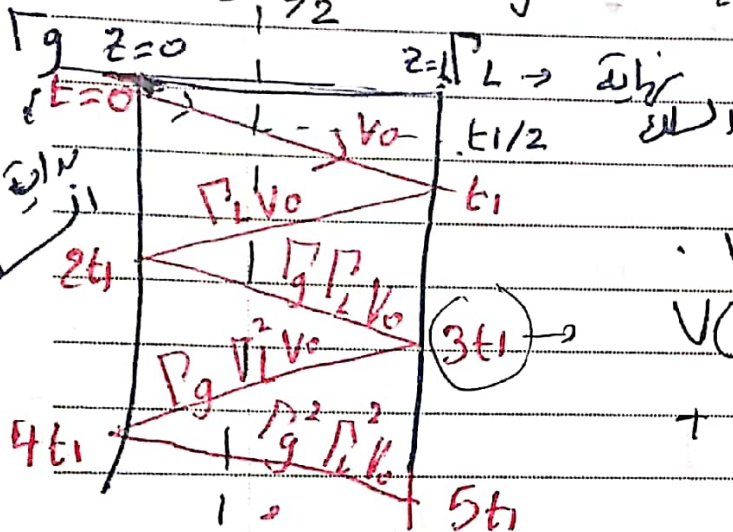 l/2
Γg z=0 z=l ΓL → نهاية
t=0 السلك
V0 t1/2
بداية
ΓLV0 t1
2t1
ΓgΓLV0 3t1 → V(
ΓgΓL²V0 +
4t1 Γg²ΓL²V0
5t1